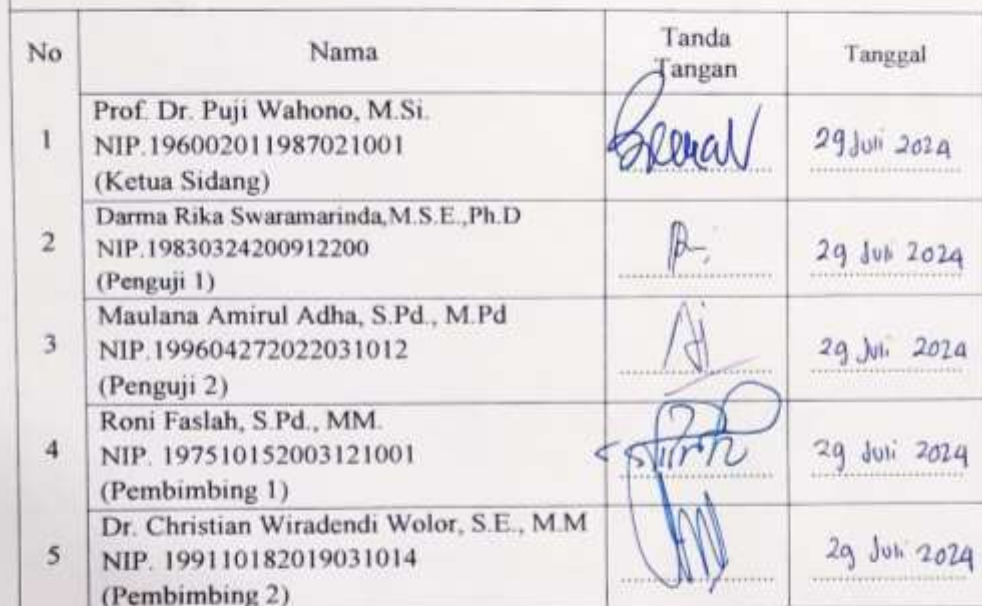 No
Nama
Tanda
Tangan
Tanggal
1
Prof. Dr. Puji Wahono, M.Si.
NIP.196002011987021001
(Ketua Sidang)
29 Juli 2024
2
Darma Rika Swaramarinda,M.S.E.,Ph.D
NIP.19830324200912200
(Penguji 1)
29 Juli 2024
3
Maulana Amirul Adha, S.Pd., M.Pd
NIP.199604272022031012
(Penguji 2)
29 Juli 2024
4
Roni Faslah, S.Pd., MM.
NIP. 197510152003121001
(Pembimbing 1)
29 Juli 2024
5
Dr. Christian Wiradendi Wolor, S.E., M.M
NIP. 199110182019031014
(Pembimbing 2)
29 Juli 2024